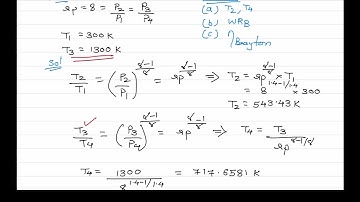 rp = 8 = P₂/P₁ = P₃/P₄
(a) T₂, T₄
(b) WRB
(c) ηBrayton
T₁ = 300 K
T₃ = 1300 K
Sol
T₂/T₁ = (P₂/P₁)^(γ-1/γ) = rp^(γ-1/γ) ⟹ T₂ = rp^(γ-1/γ) × T₁
= 8^(1.4-1/1.4) × 300
T₂ = 543.43 K
✓
T₃/T₄ = (P₃/P₄)^(γ-1/γ) = rp^(γ-1/γ) ⟹ T₄ = T₃/rp^(γ-1/γ)
T₄ = 1300/8^(1.4-1/1.4) = 717.6581 K